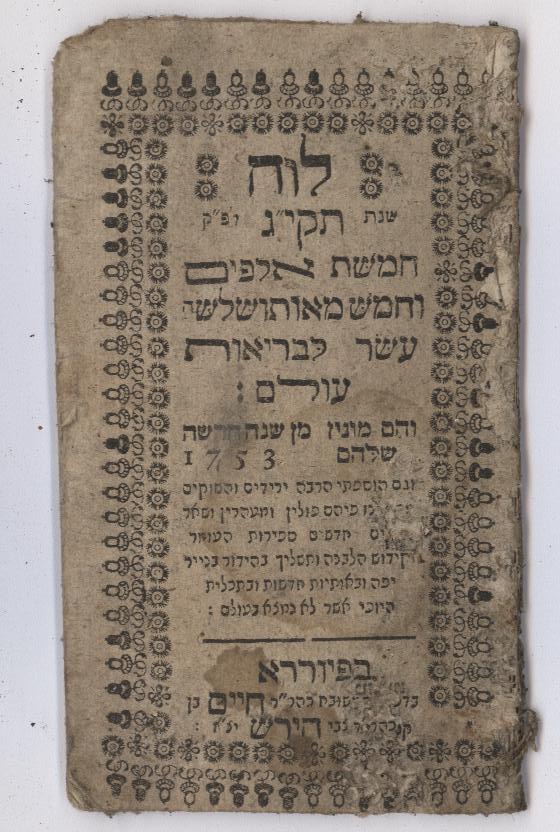 לוח
שנת תקי״ג לפ״ק
חמשת אלפים
וחמש מאות ושלשה
עשר לבריאות
עולם :
והם מונין מן שנה חדשה
שלהם 1753
וגם הוספתי הרבה ירידים והשווקים
פיהם פולין ומעהרין ושאר
חדשים ספירות העומר
וקידוש הלבנה ותשליך בהידור בנייר
יפה ובאותיות חדשות ובתכלית
היופי אשר לא נמצא בעולם :
בפיורדא
כהר״ר חיים בן
צבי הירש יצ״ו :